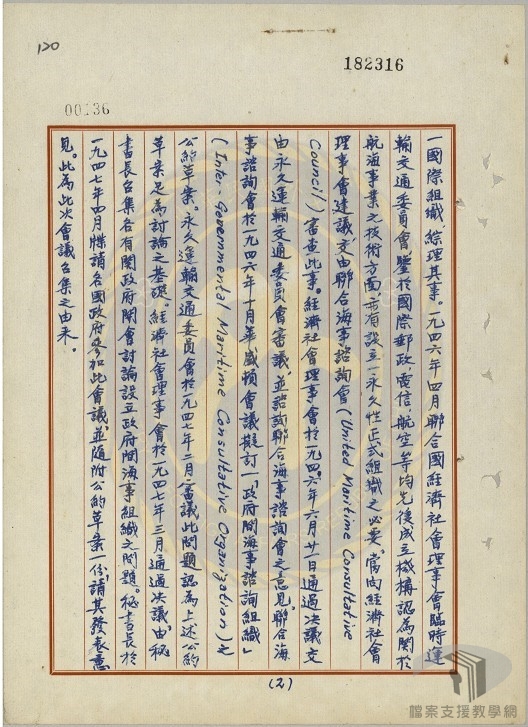 120
182316
00136
一國際組織，綜理其事。一九四六年四月聯合國經濟社會理事會臨時運
輸交通委員會鑒於國際郵政，電信，航空等均先後成立機構認為關於
航海事業之技術方面亦有設立一永久性正式組織之必要。當向經濟社會
理事會建議，交由聯合海事諮詢會(United Maritime Consultative
Council)審查此事。經濟社會理事會於一九四六年六月廿一日通過決議交
由永久運輸交通委員會審議並諮詢聯合海事諮詢會之意見，聯合海
事諮詢會於一九四六年十月華盛頓會議擬訂一「政府間海事諮詢組織」
(Inter-Governmental Maritime Consultative Organization)之
公約草案。永久運輸交通委員會於一九四七年二月審議此問題認為上述公約
草案足為討論之基礎。經濟社會理事會於一九四七年三月通過決議，由秘
書長召集各有關政府開會討論設立政府間海事組織之問題。秘書長於
一九四七年四月牒請各國政府參加此會議並隨附公約草案一份，請其發表意
見。此為此次會議召集之由來。
(2)
檔案支援教學網